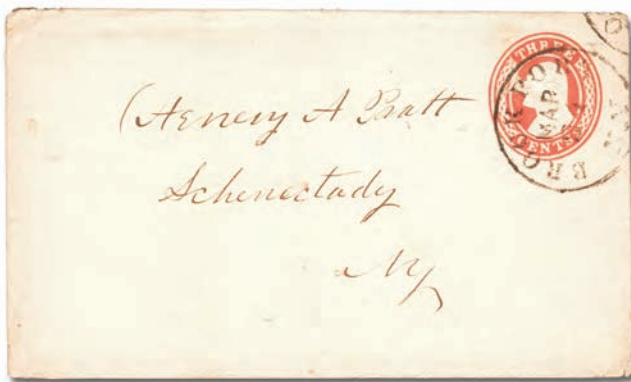 THREE
CENTS
BROCKPOR
MAR
Henry A Pratt
Schenectady
Ny